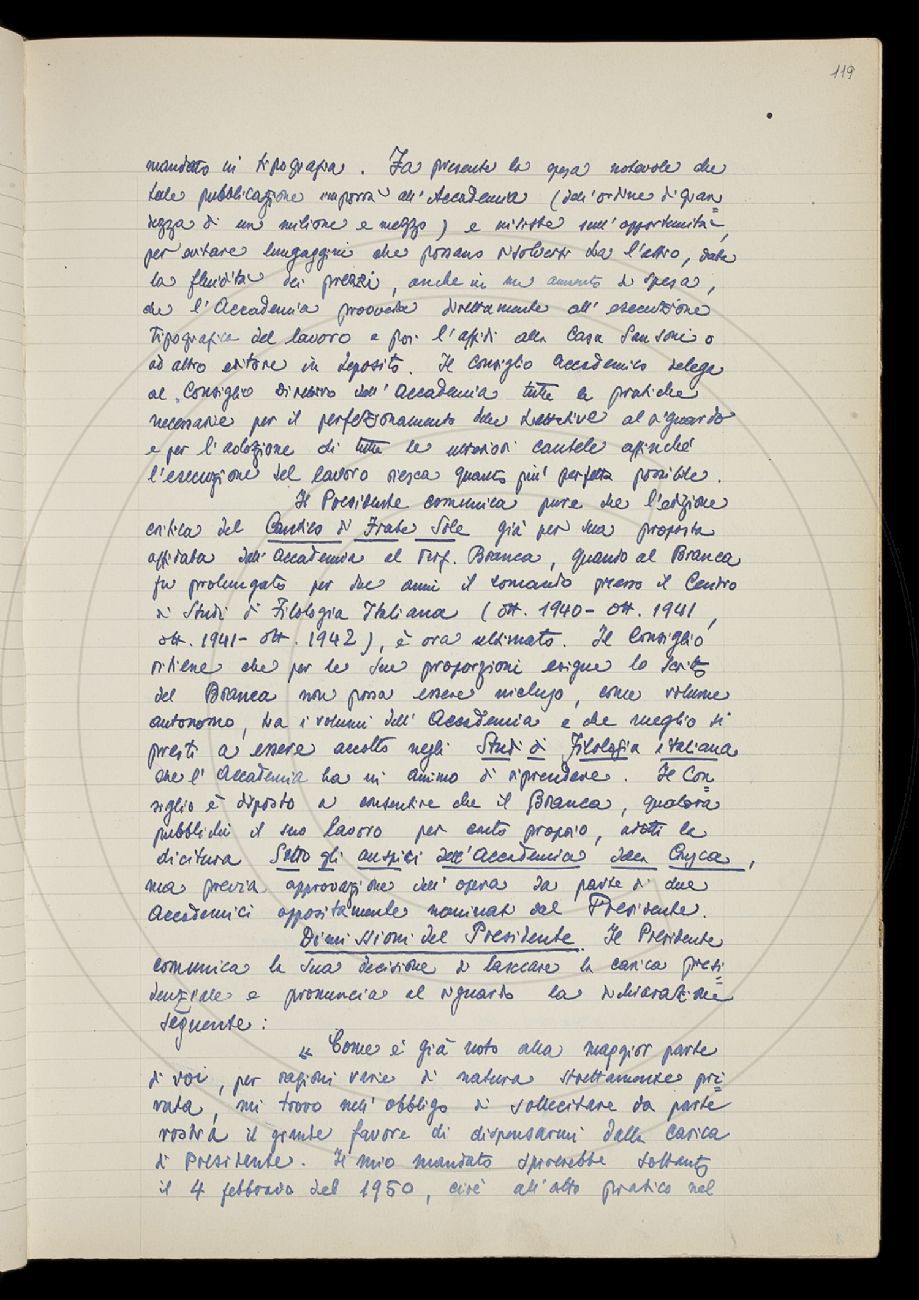 119
mandato in tipografia. Fa presente la spesa notevole che
tale pubblicazione imporrà all'Accademia (dell'ordine di gran=
dezza di un milione e mezzo) e insiste sull'opportunità,
per evitare lungaggini che possano risolversi tra l'altro, data
la fluidità dei prezzi, anche in un aumento di spesa,
che l'Accademia provveda direttamente all'esecuzione
tipografica del lavoro e poi l'affidi alla Casa Sansoni o
ad altro editore in deposito. Il Consiglio Accademico delega
al Consiglio Direttivo dell'Accademia tutte le pratiche
necessarie per il perfezionamento delle trattative al riguardo
e per l'adozione di tutte le ulteriori cautele affinché
l'esecuzione del lavoro riesca quanto più perfetta possibile.
Il Presidente comunica pure che l'edizione
critica del Cantico di Frate Sole già per sua proposta
affidata dall'Accademia al Prof. Branca, quando al Branca
fu prolungato per due anni il comando presso il Centro
di Studi di Filologia Italiana (ott. 1940 - ott. 1941,
ott. 1941 - ott. 1942), è ora ultimato. Il Consiglio
ritiene che per le sue proporzioni esigue lo scritto
del Branca non possa essere incluso, come volume
autonomo, tra i volumi dell'Accademia e che meglio si
presti a essere accolto negli Studi di Filologia italiana
che l'Accademia ha in animo di riprendere. Il Con=
siglio è disposto a consentire che il Branca, qualora
pubblichi il suo lavoro per conto proprio, adotti la
dicitura Sotto gli auspici dell'Accademia della Crusca,
ma previa approvazione dell'opera da parte di due
Accademici appositamente nominati dal Presidente.
Dimissioni del Presidente. Il Presidente
comunica la sua decisione di lasciare la carica presi=
denziale e pronuncia al riguardo la dichiarazione
seguente:
« Come è già noto alla maggior parte
di voi, per ragioni varie di natura strettamente pri=
vata, mi trovo nell'obbligo di sollecitare da parte
vostra il grande favore di dispensarmi dalla carica
di Presidente. Il mio mandato spirerebbe soltanto
il 4 febbraio del 1950, cioè all'atto pratico nel